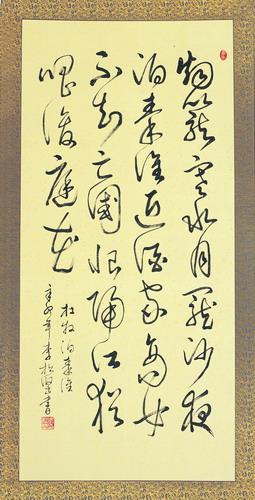 烟籠寒水月籠沙夜
泊秦淮近酒家商女
不知亡國恨隔江猶
唱後庭花
杜牧泊秦淮
辛卯年李松書